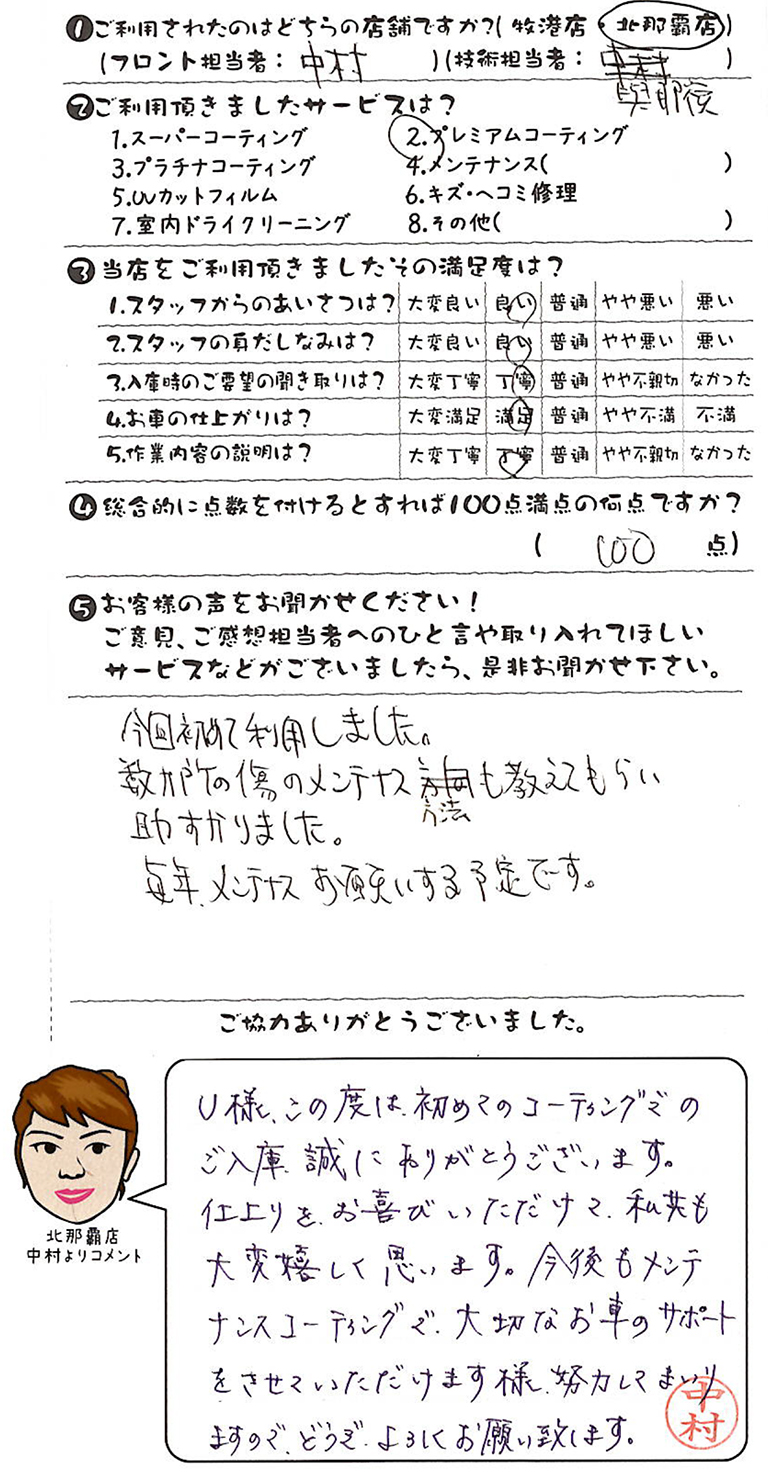 ❶ご利用されたのはどちらの店舗ですか?(牧港店・北那覇店)
(フロント担当者: 中村 )(技術担当者: 中村 )
與那覇
❷ご利用頂きましたサービスは?
1.スーパーコーティング 2.プレミアムコーティング
3.プラチナコーティング 4.メンテナンス( )
5.UVカットフィルム 6.キズ・ヘコミ修理
7.室内ドライクリーニング 8.その他( )
❸当店をご利用頂きましたその満足度は?
1.スタッフからのあいさつは? 大変良い 良い 普通 やや悪い 悪い
2.スタッフの身だしなみは? 大変良い 良い 普通 やや悪い 悪い
3.入庫時のご要望の聞き取りは? 大変丁寧 丁寧 普通 やや不親切 なかった
4.お車の仕上がりは? 大変満足 満足 普通 やや不満 不満
5.作業内容の説明は? 大変丁寧 丁寧 普通 やや不親切 なかった
❹総合的に点数を付けるとすれば100点満点の何点ですか?
( 100 点)
❺お客様の声をお聞かせください!
ご意見、ご感想担当者へのひと言や取り入れてほしい
サービスなどがございましたら、是非お聞かせ下さい。
今回初めて利用しました。
数カ所の傷のメンテナス も教えてもらい
方法
助すかりました。
毎年、メンテナス お願いする予定です。
ご協力ありがとうございました。
U様、この度は、初めてのコーティングでの
ご入庫、誠にありがとうございます。
仕上りを、お喜びいただけて、私共も
大変嬉しく思います。今後もメンテ
ナンスコーティングで、大切なお車のサポート
をさせていただけます様、努力してまいり
ますので、どうぞ、よろしくお願い致します。
中村
北那覇店
中村よりコメント